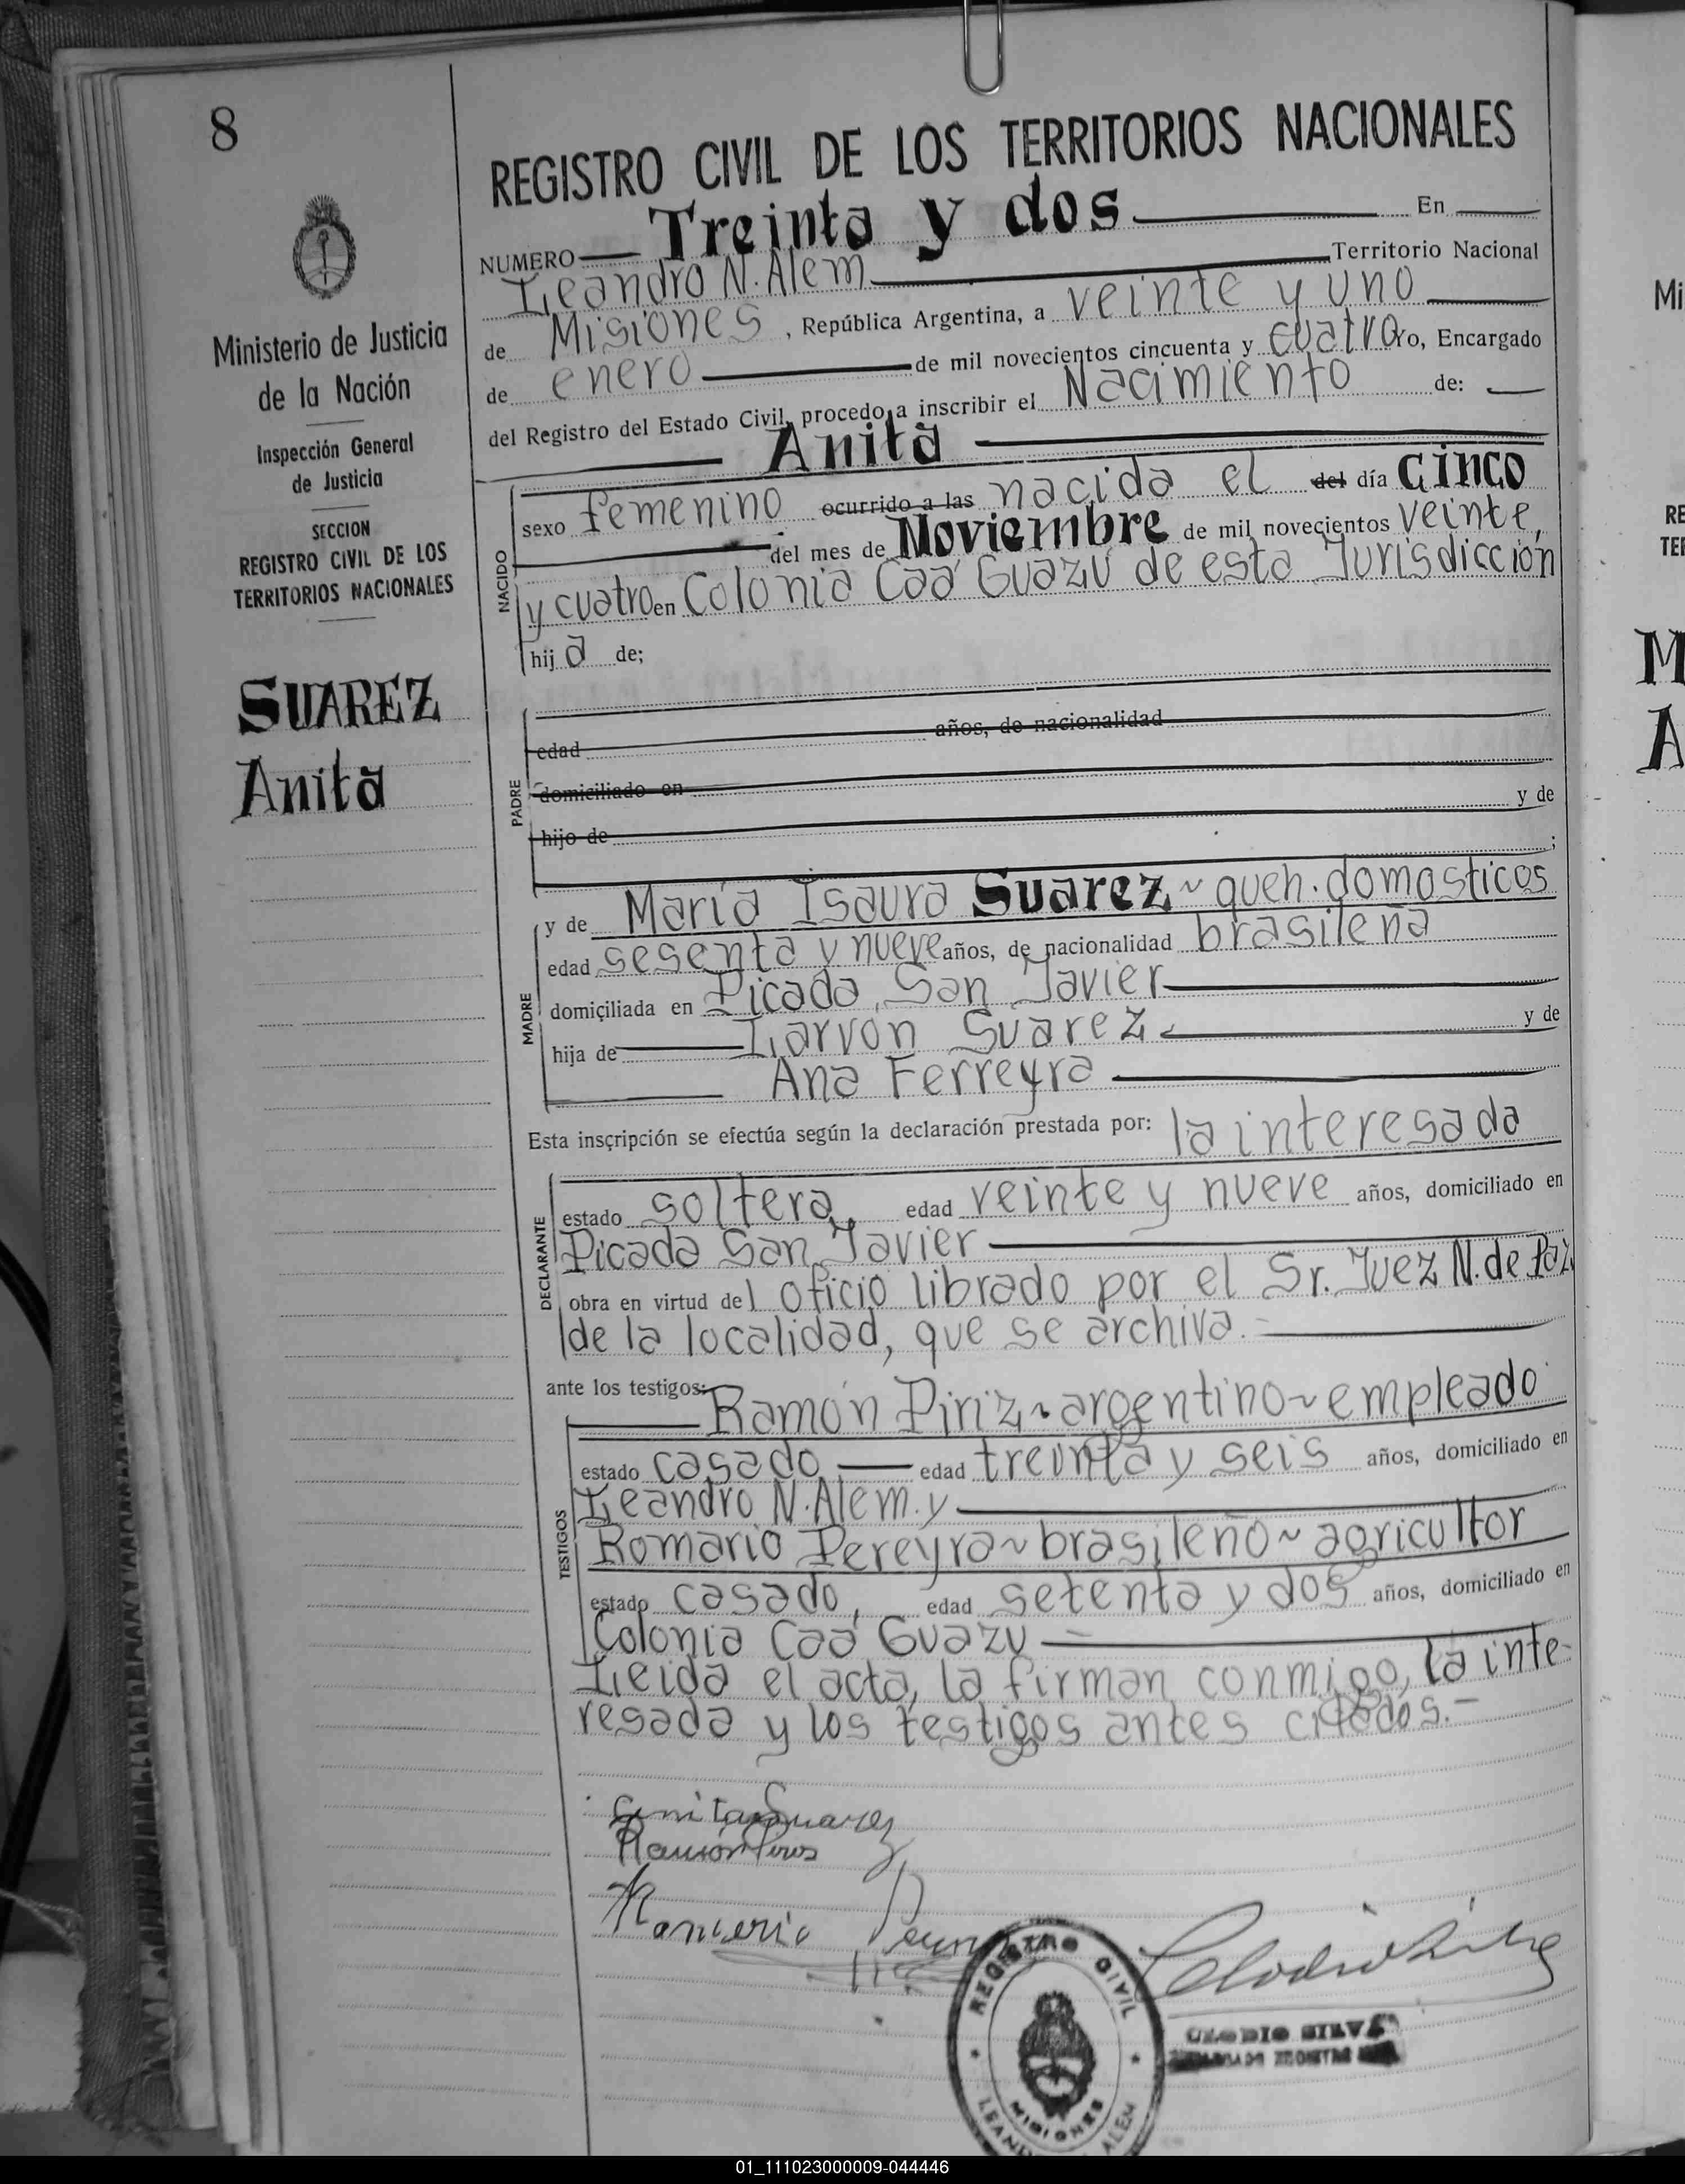 8
Ministerio de Justicia
de la Nación
Inspección General
de Justicia
SECCION
REGISTRO CIVIL DE LOS
TERRITORIOS NACIONALES
SUAREZ
Anita
REGISTRO CIVIL DE LOS TERRITORIOS NACIONALES
NUMERO Treinta y dos En
Leandro N. Alem Territorio Nacional
de Misiones, República Argentina, a veinte y uno
de enero de mil novecientos cincuenta y cuatro yo, Encargado
del Registro del Estado Civil, procedo a inscribir el Nacimiento de:
Anita
NACIDO
sexo femenino ocurrido a las nacida el del día cinco
del mes de Noviembre de mil novecientos veinte
y cuatro en Colonia Caá Guazú de esta Jurisdicción
hija de;
PADRE
edad años, de nacionalidad
domiciliado en
hijo de y de
;
MADRE
y de María Isaura Suarez ~ queh. domosticos
edad sesenta y nueve años, de nacionalidad brasileña
domiciliada en Picada San Javier
hija de Larvon Suarez y de
Ana Ferreyra
Esta inscripción se efectúa según la declaración prestada por: la interesada
DECLARANTE
estado soltera, edad veinte y nueve años, domiciliado en
Picada San Javier
obra en virtud del oficio librado por el Sr. Juez N. de Paz
de la localidad, que se archiva.-
ante los testigos:
TESTIGOS
Ramón Piriz ~ argentino ~ empleado
estado casado edad treinta y seis años, domiciliado en
Leandro N. Alem y
Romario Pereyra ~ brasileño ~ agricultor
estado casado, edad setenta y dos años, domiciliado en
Colonia Caá Guazu
Leida el acta, la firman conmigo, la inte-
resada y los testigos antes citados.-
Anita Suarez
Ramón
REGISTRO CIVIL
MISIONES
LEANDRO ALEM
CLODIO SILVA
Mi
RE
TER
M
A
01_111023000009-044446